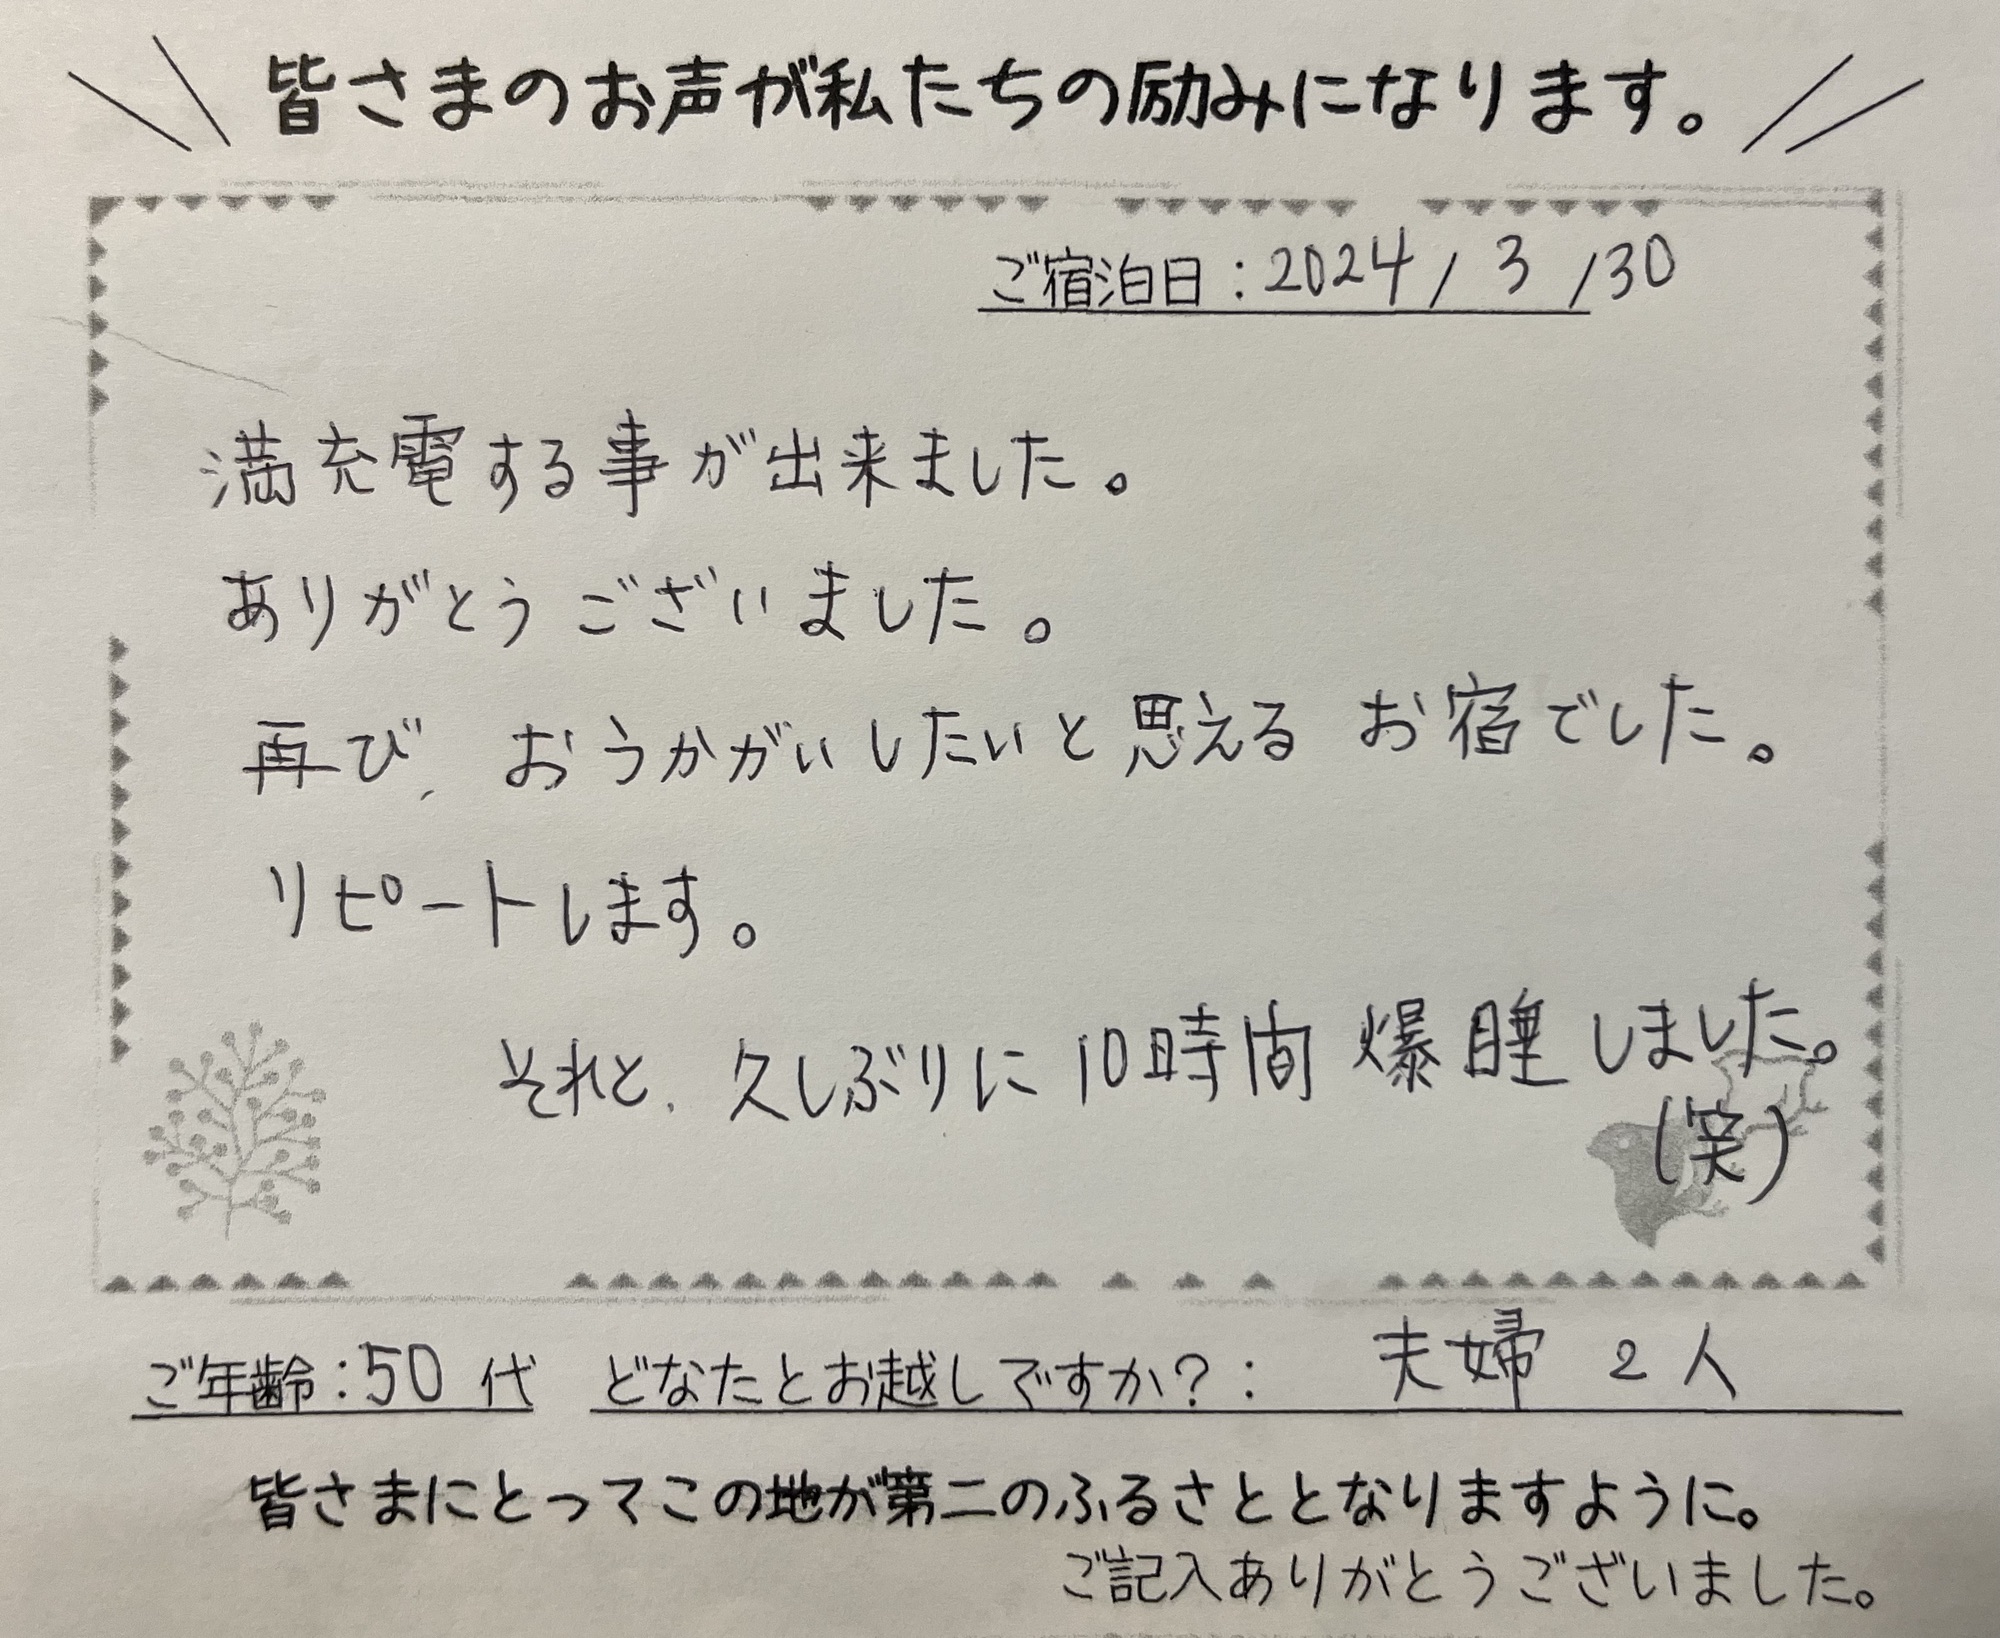 皆さまのお声が私たちの励みになります。
ご宿泊日：2024/3/30
満充電する事が出来ました。
ありがとうございました。
再び、おうかがいしたいと思えるお宿でした。
リピートします。
それと、久しぶりに10時間爆睡しました。
(笑)
ご年齢：50代 どなたとお越しですか？： 夫婦 2人
皆さまにとってこの地が第二のふるさととなりますように。
ご記入ありがとうございました。